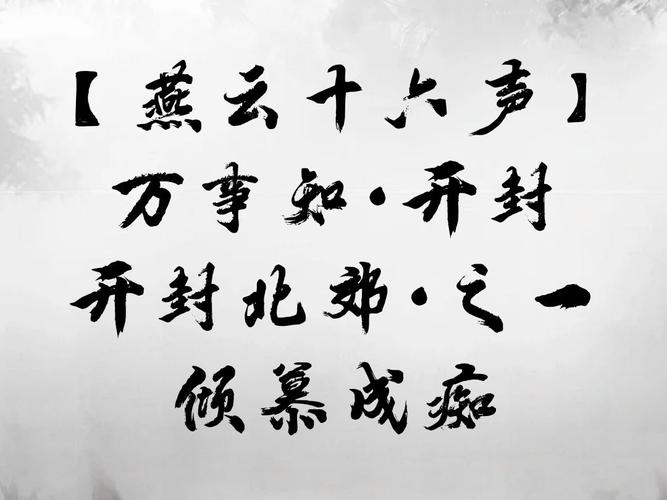 【燕云十六声】
万事知·开封
开封北郊·之一
倾慕成痴